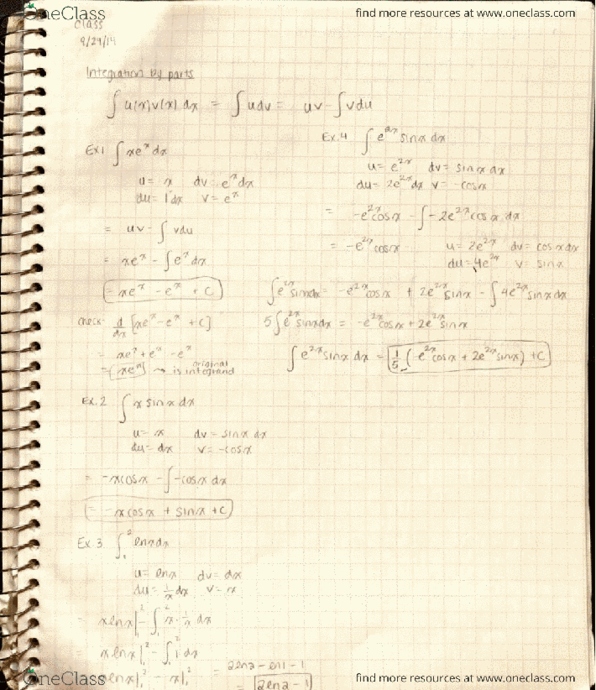 OneClass
find more resources at www.oneclass.com
Class
9/29/14
Integration by parts
∫ u(x)v(x) dx = ∫ u dv = uv - ∫ v du
Ex.1 ∫ xe^x dx
u = x dv = e^x dx
du = 1 dx v = e^x
= uv - ∫ v du
= xe^x - ∫ e^x dx
= xe^x - e^x + C
check - d/dx [xe^x - e^x + C]
= xe^x + e^x - e^x
= xe^x → is original integrand
Ex.2 ∫ x sinx dx
u = x dv = sinx dx
du = dx v = -cosx
= -xcosx - ∫ -cosx dx
= -xcosx + sinx + C
Ex 3 ∫_1^2 lnx dx
u = lnx dv = dx
du = 1/x dx v = x
= xlnx|_1^2 - ∫_1^2 x · 1/x dx
= xlnx|_1^2 - ∫_1^2 1 dx
= xlnx|_1^2 - x|_1^2 = 2ln2 - ln1 - 1
= 2ln2 - 1
Ex.4 ∫ e^2x sinx dx
u = e^2x dv = sinx dx
du = 2e^2x dx v = -cosx
= -e^2x cosx - ∫ -2e^2x cosx dx
= -e^2x cosx u = 2e^2x dv = cosx dx
du = 4e^2x v = sinx
∫ e^2x sinx dx = -e^2x cosx + 2e^2x sinx - ∫ 4e^2x sinx dx
5∫ e^2x sinx dx = -e^2x cosx + 2e^2x sinx
∫ e^2x sinx dx = 1/5 (-e^2x cosx + 2e^2x sinx) + C
OneClass
find more resources at www.oneclass.com